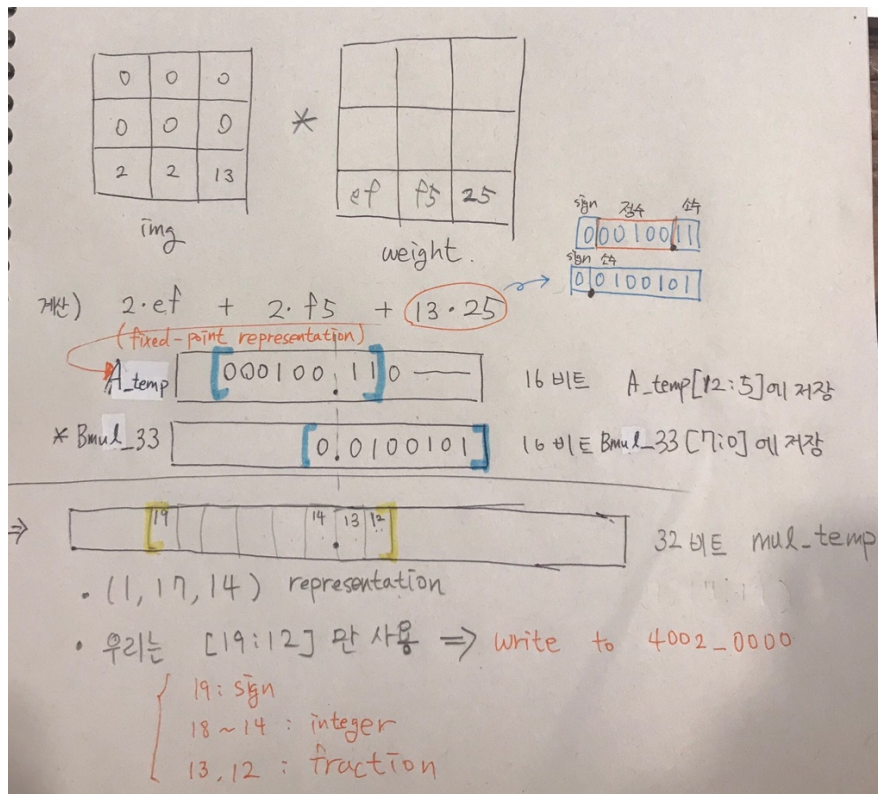 0 0 0
0 0 0
2 2 13
img
*
ef f5 25
weight.
sign 정수 소수
0 0 0 1 0 0 1 1
sign 소수
0 0 1 0 0 1 0 1
계산) 2·ef + 2·f5 + 13·25
(fixed-point representation)
A_temp [000100.11]0 16 비트 A_temp[12:5]에 저장
* Bmul_33 [0.0100101] 16 비트 Bmul_33[7:0]에 저장
⇒ [19 14 . 13 12] 32 비트 mul_temp
· (1, 17, 14) representation
· 우리는 [19:12] 만 사용 ⇒ write to 4002_0000
19: sign
18~14: integer
13, 12: fraction